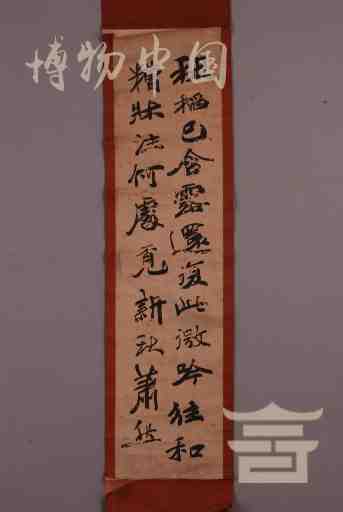 博物中国
稻已含露還復此微吟往和
糟牀注何處覓新秋蕭然